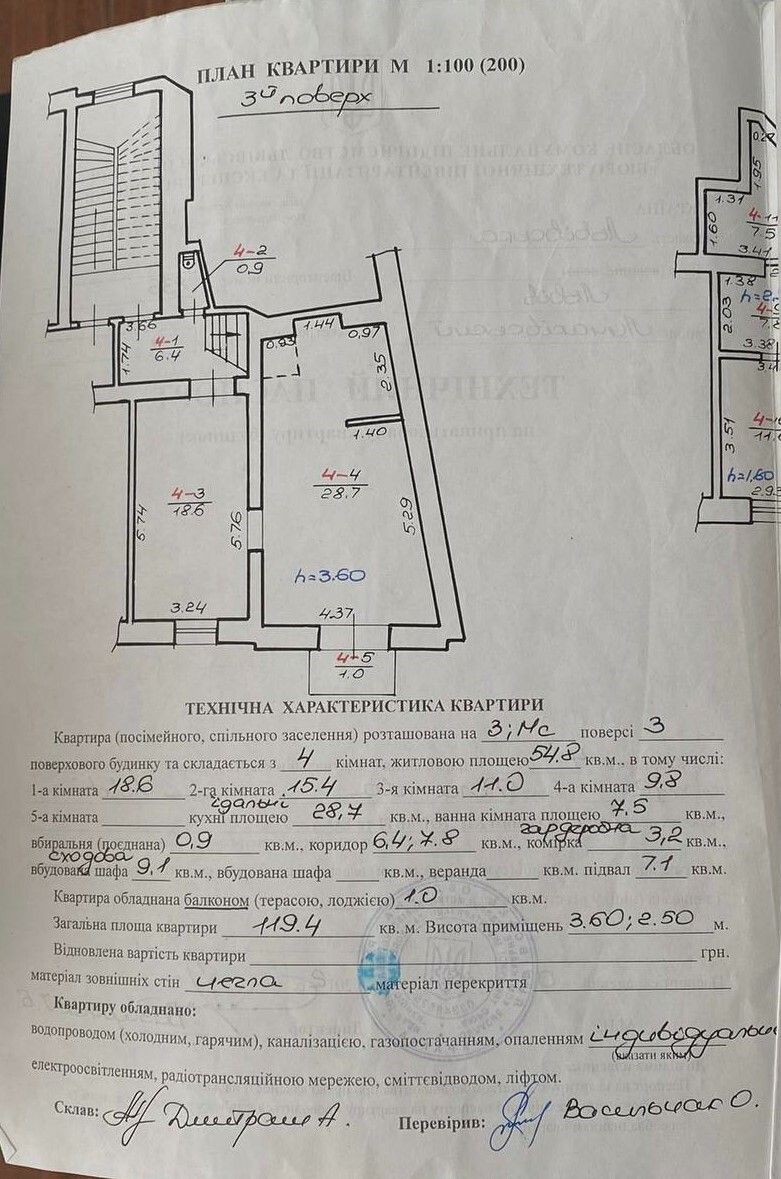 ПЛАН КВАРТИРИ М 1:100 (200)
3й поверх
4-2
0.9
3.66
4-1
6.4
1.74
0.93
1.44
0,97
2.35
1.40
4-3
18.6
5.74
5.76
3.24
4-4
28.7
5.29
h=3.60
4.37
4-5
1.0
0.28
1.95
1.31
1.60
4-11
7.5
3.41
1.38
2.03
3.38
3.51
h=1.60
ТЕХНІЧНА ХАРАКТЕРИСТИКА КВАРТИРИ
Квартира (посімейного, спільного заселення) розташована на 3; Мс поверсі 3
поверхового будинку та складається з 4 кімнат, житловою площею 54.8 кв.м., в тому числі:
1-а кімната 18.6 2-га кімната 15.4 3-я кімната 11.0 4-а кімната 9,8
їдальні
5-а кімната кухні площею 28,7 кв.м., ванна кімната площею 7.5 кв.м.,
гардеробна
вбиральня (поєднана) 0,9 кв.м., коридор 6,4; 7.8 кв.м., комірка 3,2 кв.м.,
сходова
вбудована шафа 9,1 кв.м., вбудована шафа кв.м., веранда кв.м. підвал 7.1 кв.м.
Квартира обладнана балконом (терасою, лоджією) 1.0 кв.м.
Загальна площа квартири 119.4 кв. м. Висота приміщень 3.60; 2.50 м.
Відновлена вартість квартири грн.
матеріал зовнішніх стін цегла матеріал перекриття
Квартиру обладнано:
водопроводом (холодним, гарячим), каналізацією, газопостачанням, опаленням
(вказати яким)
електроосвітленням, радіотрансляційною мережею, сміттєвідводом, ліфтом.
Склав: Дмитраш А. Перевірив: Васильчак О.